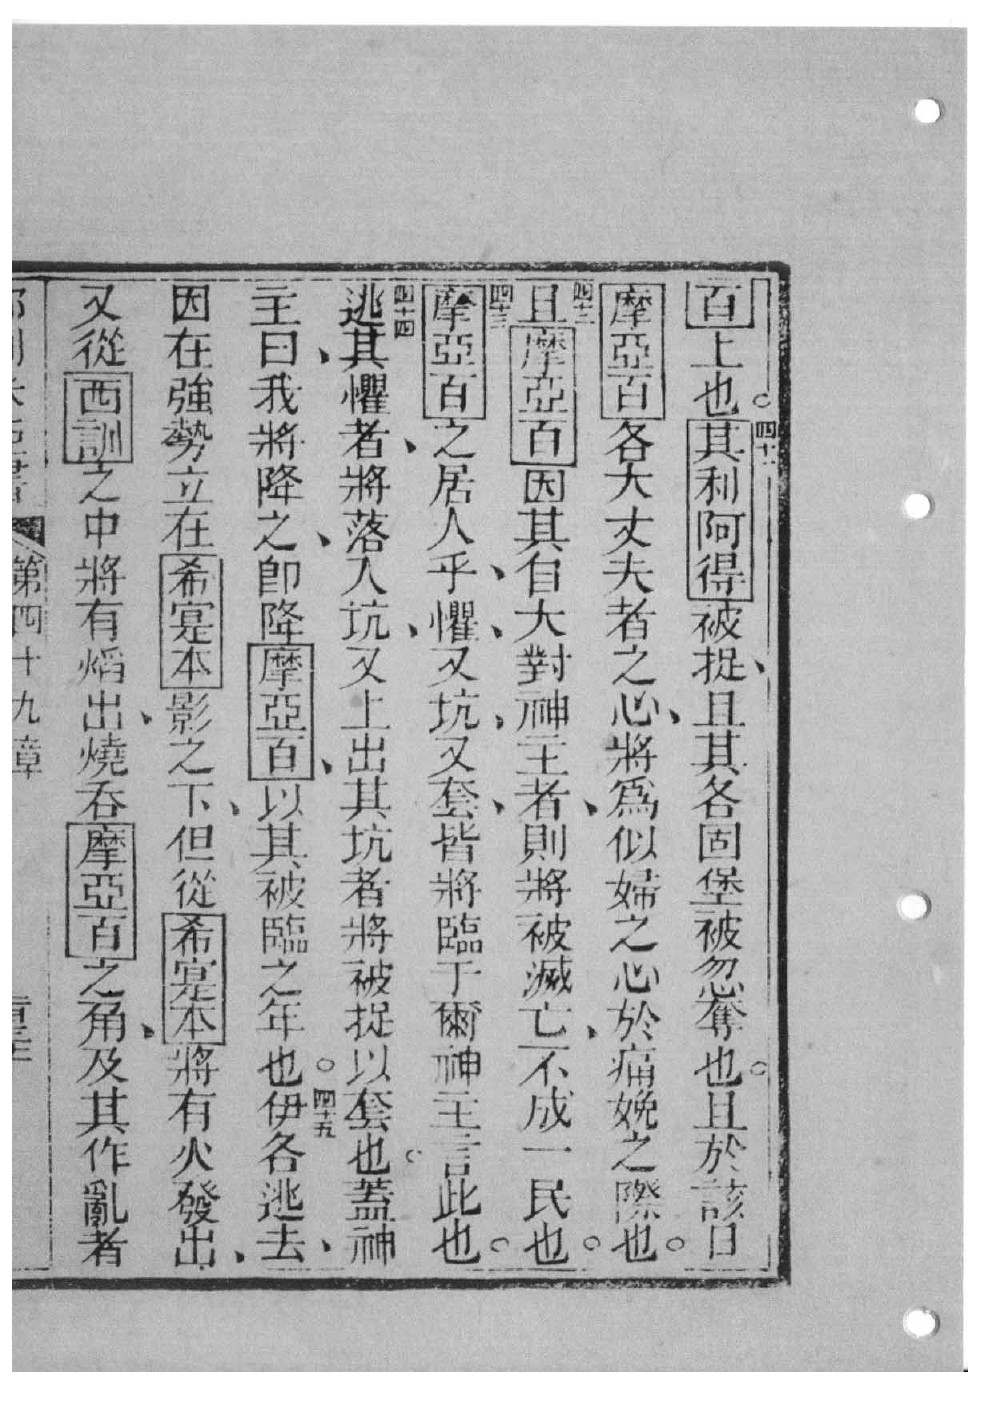 百上也。四十一其利阿得被捉、且其各固堡被忽奪也。且於該日
摩亞百各大丈夫者之心、將爲似婦之心於痛娩之際也。
四十二且摩亞百因其自大對神主者、則將被滅亡、不成一民也。
四十三摩亞百之居人乎、懼、又坑、又套、皆將臨于爾神主言此也。
四十四逃其懼者、將落入坑、又上出其坑者將被捉以套也。蓋神
主曰、我將降之、卽降摩亞百、以其被臨之年也。四十五伊各逃去、
因在強勢立在希寔本影之下、但從希寔本將有火發出、
又從西訓之中將有焰出、燒吞摩亞百之角、及其作亂者
第四十九章